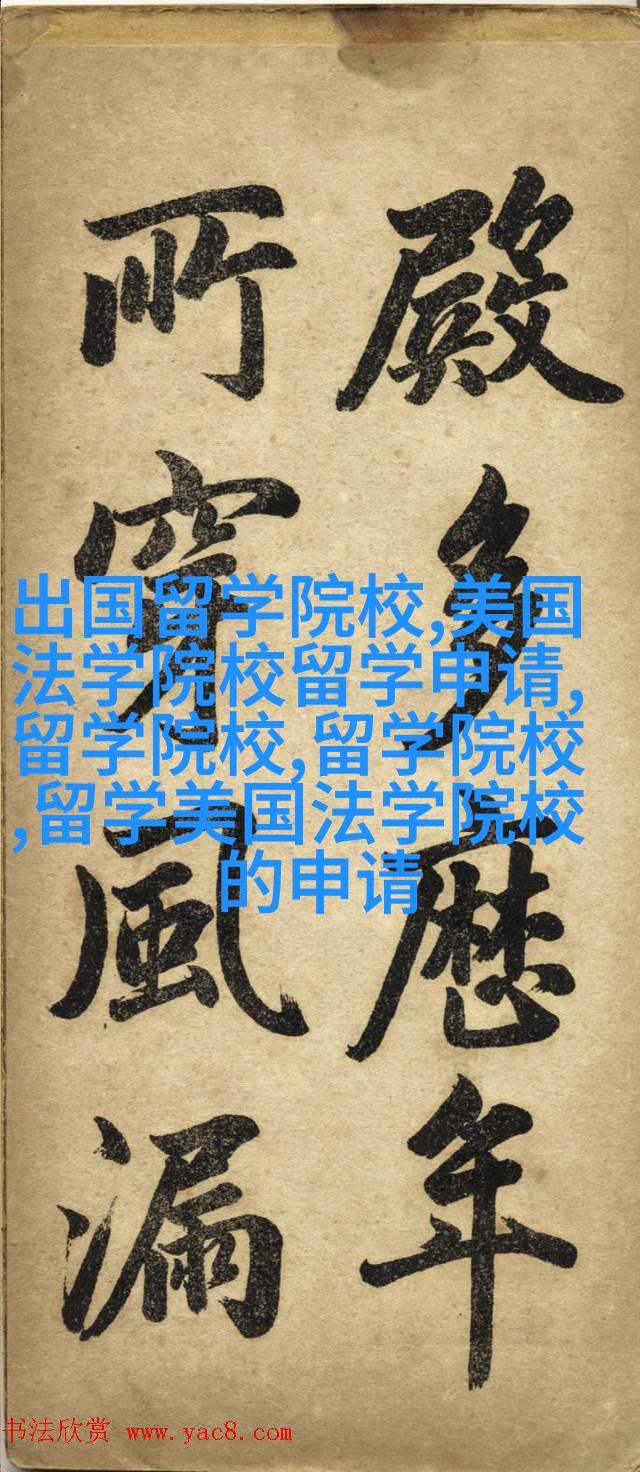 殿多歷年
所穿風漏
出国留学院校,美国
法学院校留学申请,
留学院校,留学院校
,留学美国法学院校
的申请
书法欣赏 www.yac8.com